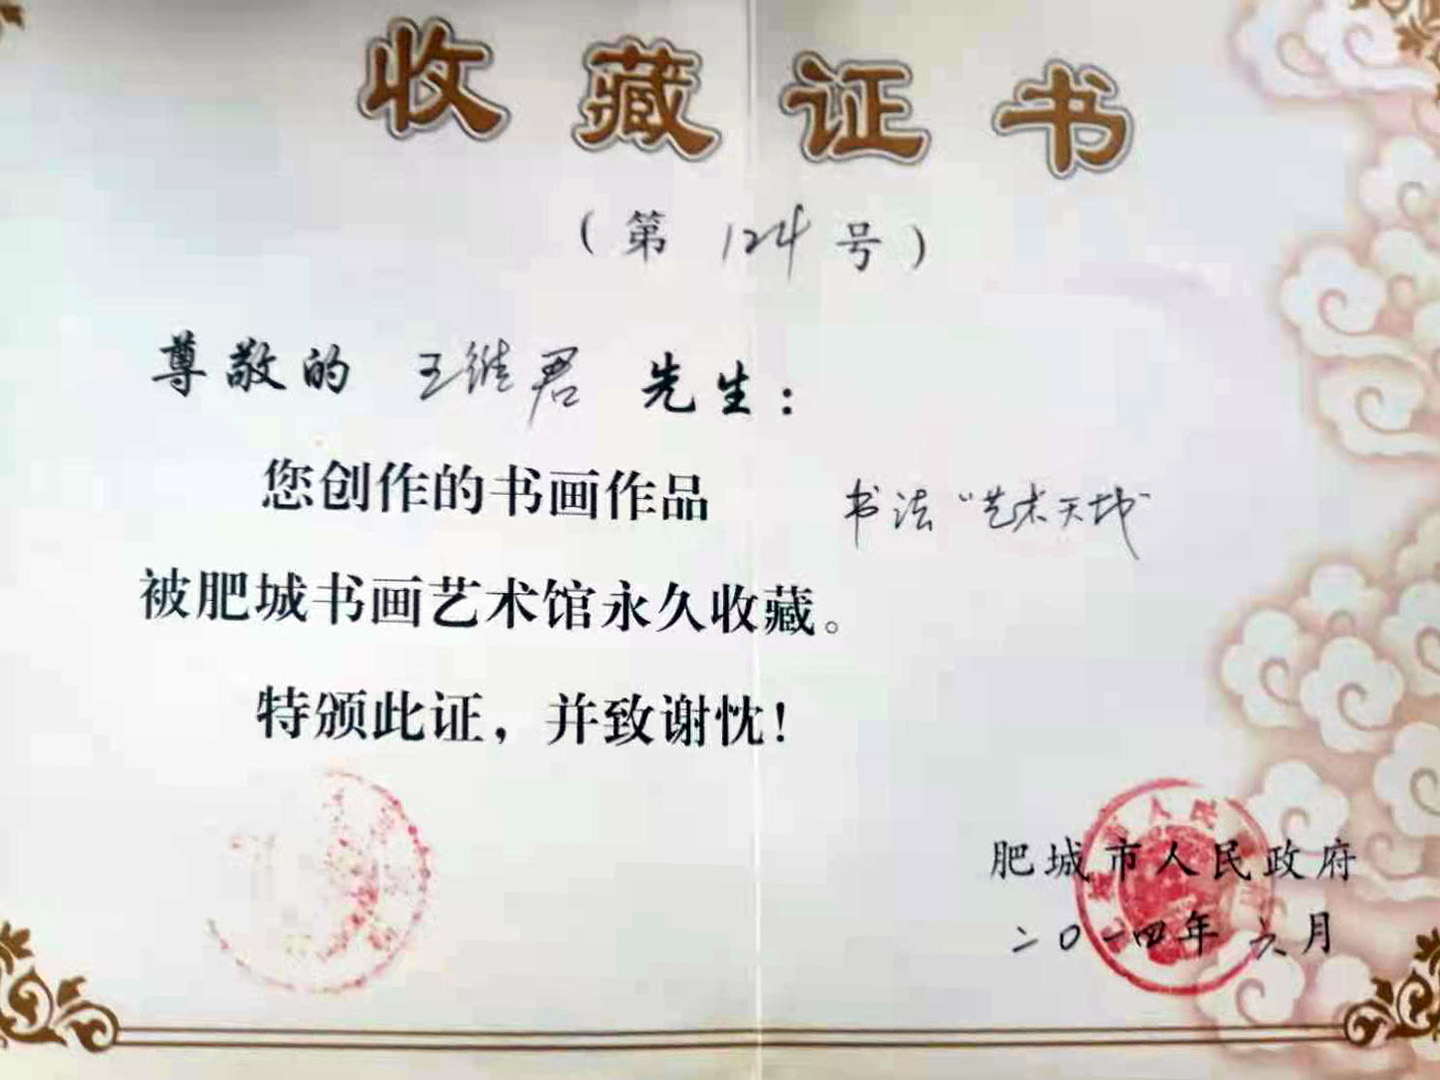 收藏证书
（第 124 号）
尊敬的 王维君 先生：
您创作的书画作品 书法“艺术天地”
被肥城书画艺术馆永久收藏。
特颁此证，并致谢忱！
肥城市人民政府
二〇一四年六月